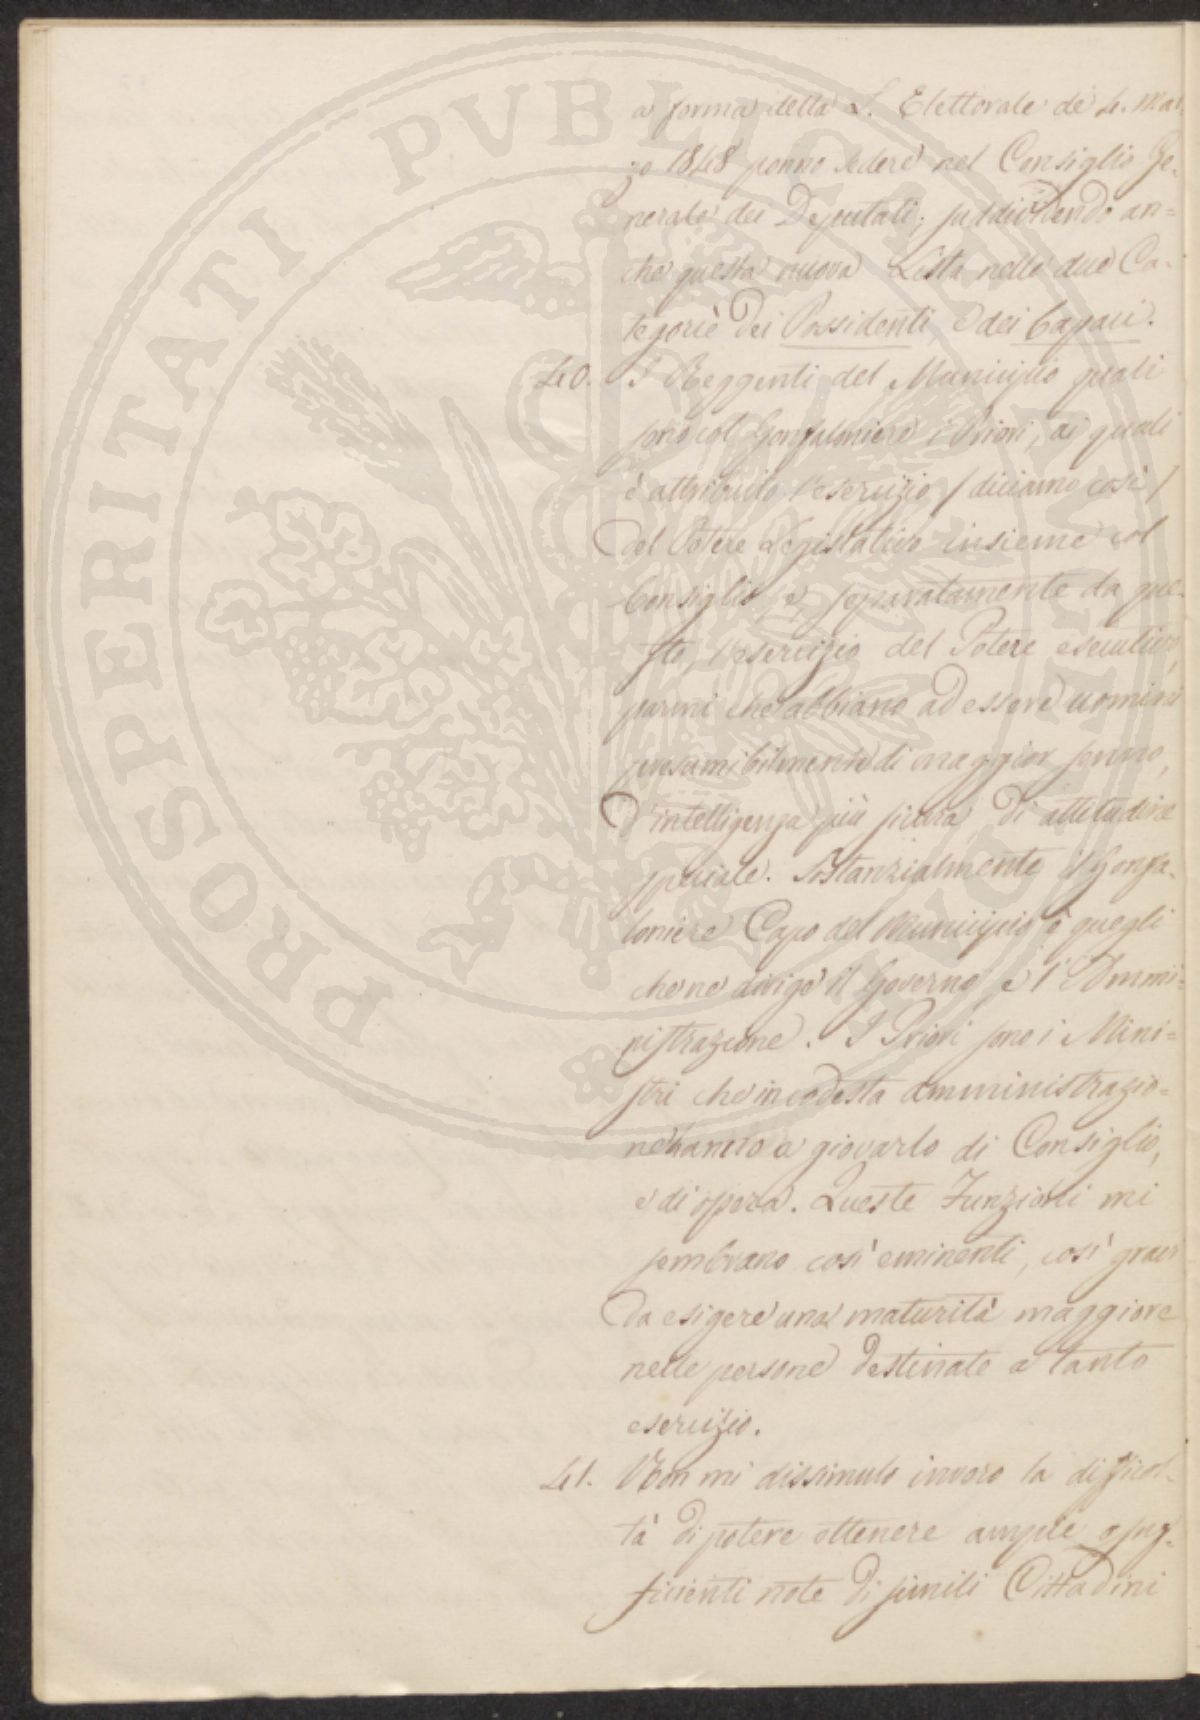 a forma della L. Elettorale de' 4. Mar-
zo 1848 ponno sedere nel Consiglio Ge-
nerale dei Deputati; suddividendo an=
che questa nuova Lista nelle due Ca-
tegorie dei Possidenti, e dei Capaci.
40. I Reggenti del Municipio quali
sono col Gonfaloniere i Priori, ai quali
è attribuito l'esercizio /diciamo così/
del Potere Legislativo insieme col
Consiglio, e, separatamente da que-
sto, l'esercizio del Potere esecutivo,
parmi che abbiano ad essere uomini
presumibilmente di maggior senno,
d'intelligenza più sicura, di attitudine
speciale. Sostanzialmente il Gonfa-
loniere Capo del Municipio è quegli
che ne dirige il Governo, e l'Ammi-
nistrazione. I Priori sono i Mini=
stri che in codesta amministrazio=
ne hanno a giovarlo di Consiglio,
e di opera. Queste Funzioni mi
sembrano così eminenti, così gravi
da esigere una maturità maggiore
nelle persone destinate a tanto
esercizio.
41. Non mi dissimulo invero la difficol-
tà di potere ottenere ampie e suf-
ficienti note di simili Cittadini
PROSPERITATI PVBLICAE